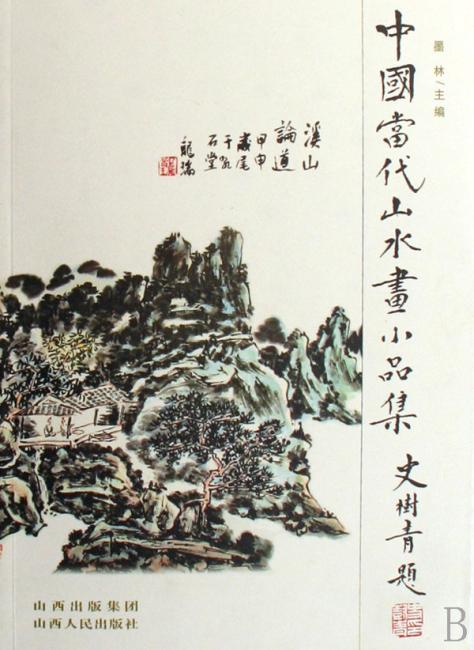 中國當代山水畫小品集
史樹青題
墨林/主编
溪山
論道
甲申
歲尾
于瓦
石堂
龍瑞
山西出版集团
山西人民出版社
B